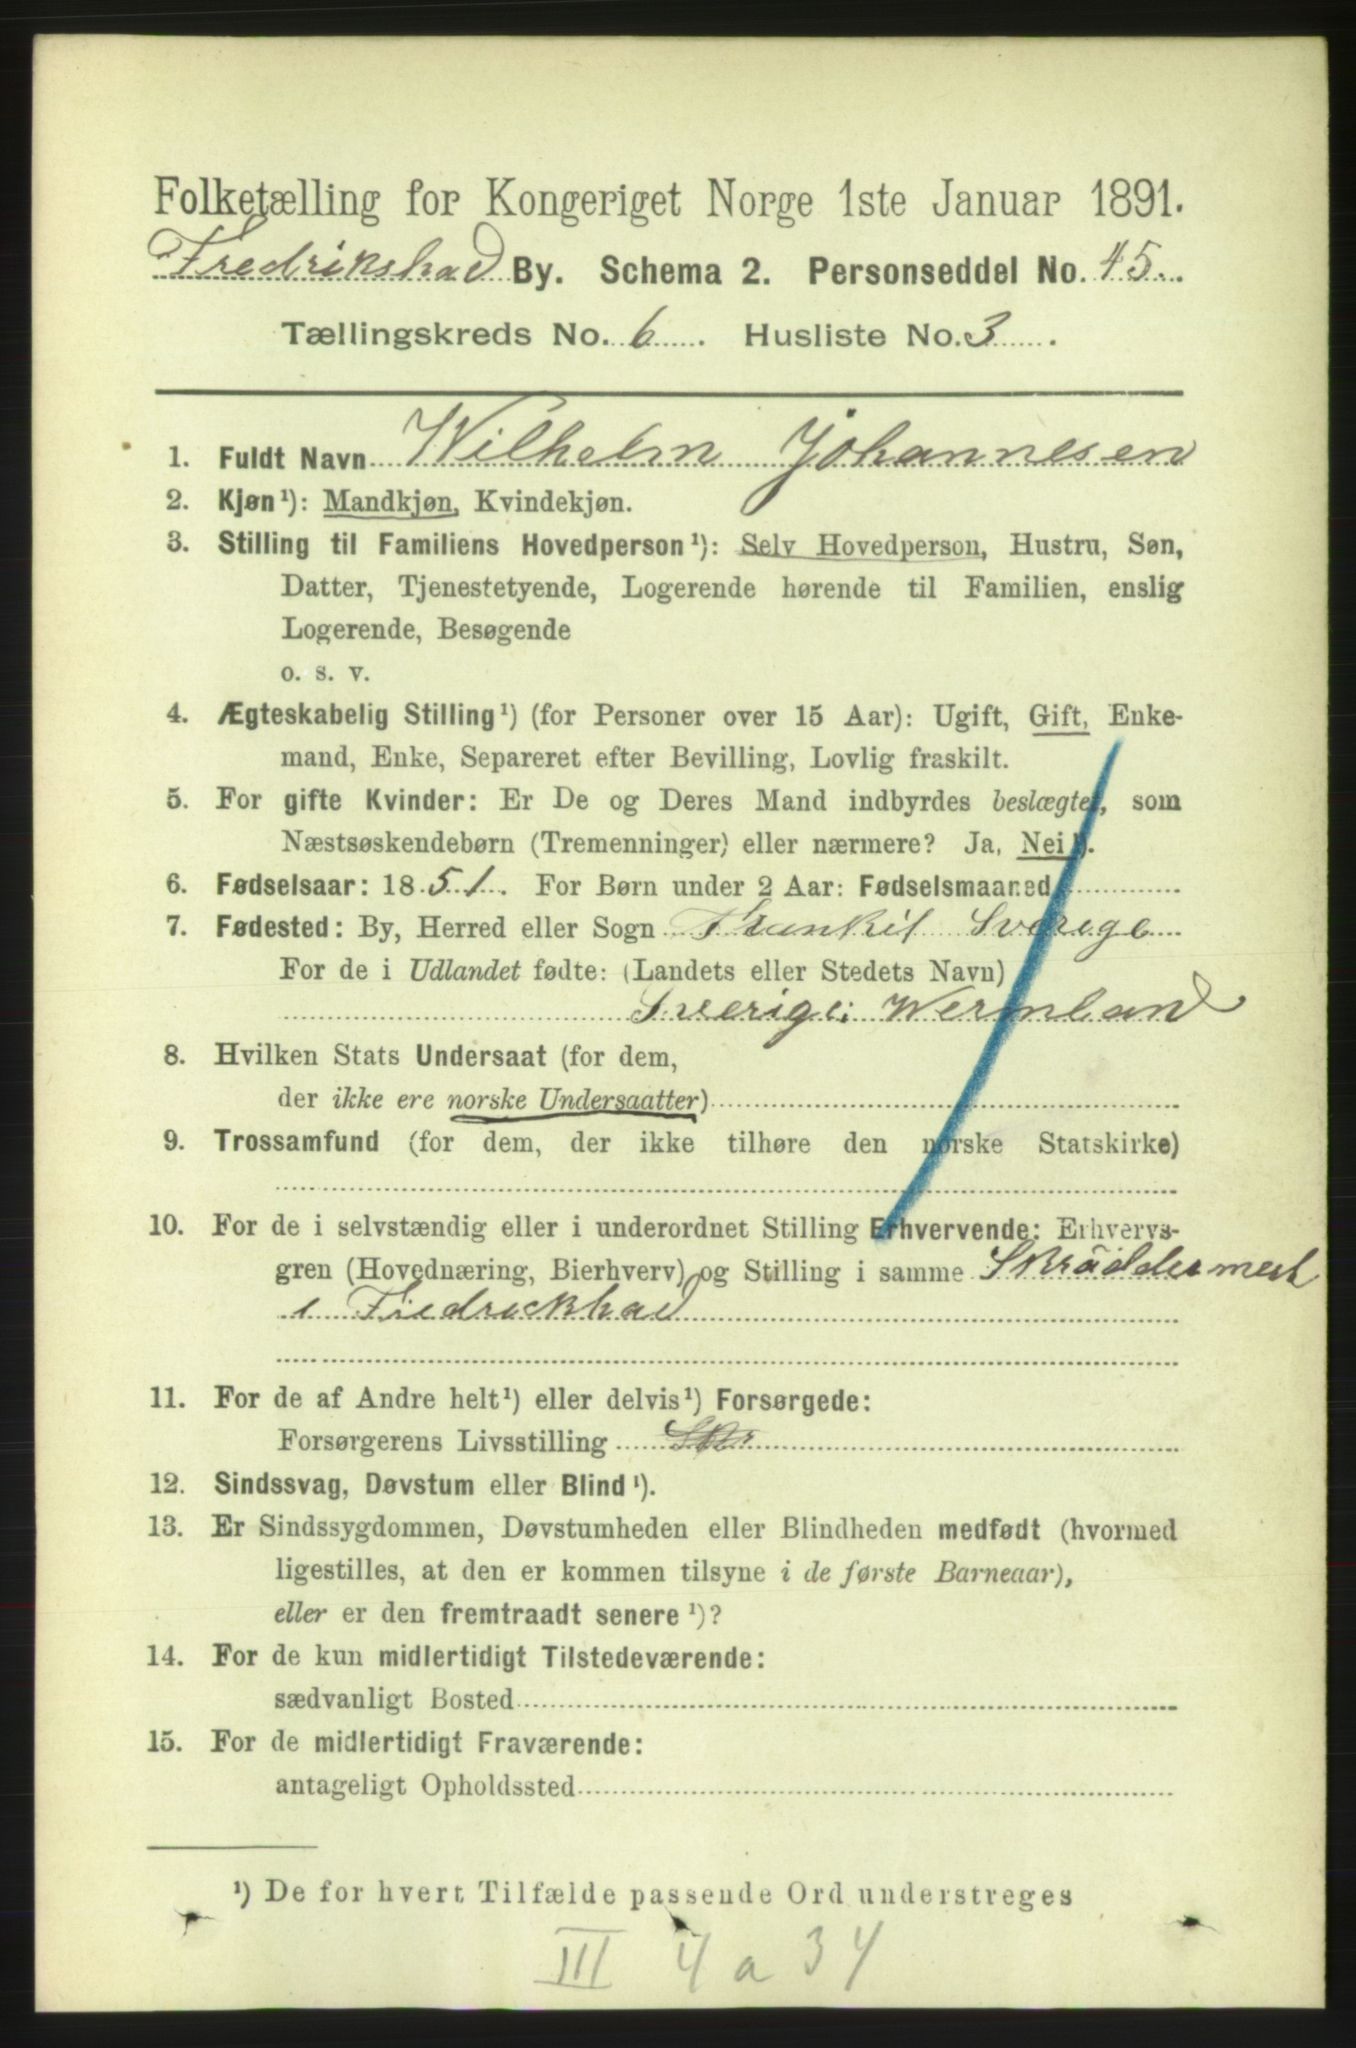 Folketælling for Kongeriget Norge 1ste Januar 1891.
Fredrikshad By. Schema 2. Personseddel No. 45.
Tællingskreds No. 6. Husliste No. 3.
1. Fuldt Navn Wilhelm Johannesen
2. Kjøn¹): Mandkjøn, Kvindekjøn.
3. Stilling til Familiens Hovedperson¹): Selv Hovedperson, Hustru, Søn,
Datter, Tjenestetyende, Logerende hørende til Familien, enslig
Logerende, Besøgende
o. s. v.
4. Ægteskabelig Stilling¹) (for Personer over 15 Aar): Ugift, Gift, Enke-
mand, Enke, Separeret efter Bevilling, Lovlig fraskilt.
5. For gifte Kvinder: Er De og Deres Mand indbyrdes beslægtet, som
Næstsøskendebørn (Tremenninger) eller nærmere? Ja, Nei¹).
6. Fødselsaar: 1851. For Børn under 2 Aar: Fødselsmaaned
7. Fødested: By, Herred eller Sogn Trankil Sverige
For de i Udlandet fødte: (Landets eller Stedets Navn)
Sverige: Wermland
8. Hvilken Stats Undersaat (for dem,
der ikke ere norske Undersaatter)
9. Trossamfund (for dem, der ikke tilhøre den norske Statskirke)
10. For de i selvstændig eller i underordnet Stilling Erhvervende: Erhvervs-
gren (Hovednæring, Bierhverv) og Stilling i samme Skräddermest
i Fredrickhad
11. For de af Andre helt¹) eller delvis¹) Forsørgede:
Forsørgerens Livsstilling Skr
12. Sindssvag, Døvstum eller Blind¹).
13. Er Sindssygdommen, Døvstumheden eller Blindheden medfødt (hvormed
ligestilles, at den er kommen tilsyne i de første Barneaar),
eller er den fremtraadt senere¹)?
14. For de kun midlertidigt Tilstedeværende:
sædvanligt Bosted
15. For de midlertidigt Fraværende:
antageligt Opholdssted
¹) De for hvert Tilfælde passende Ord understreges
III 4 a 34